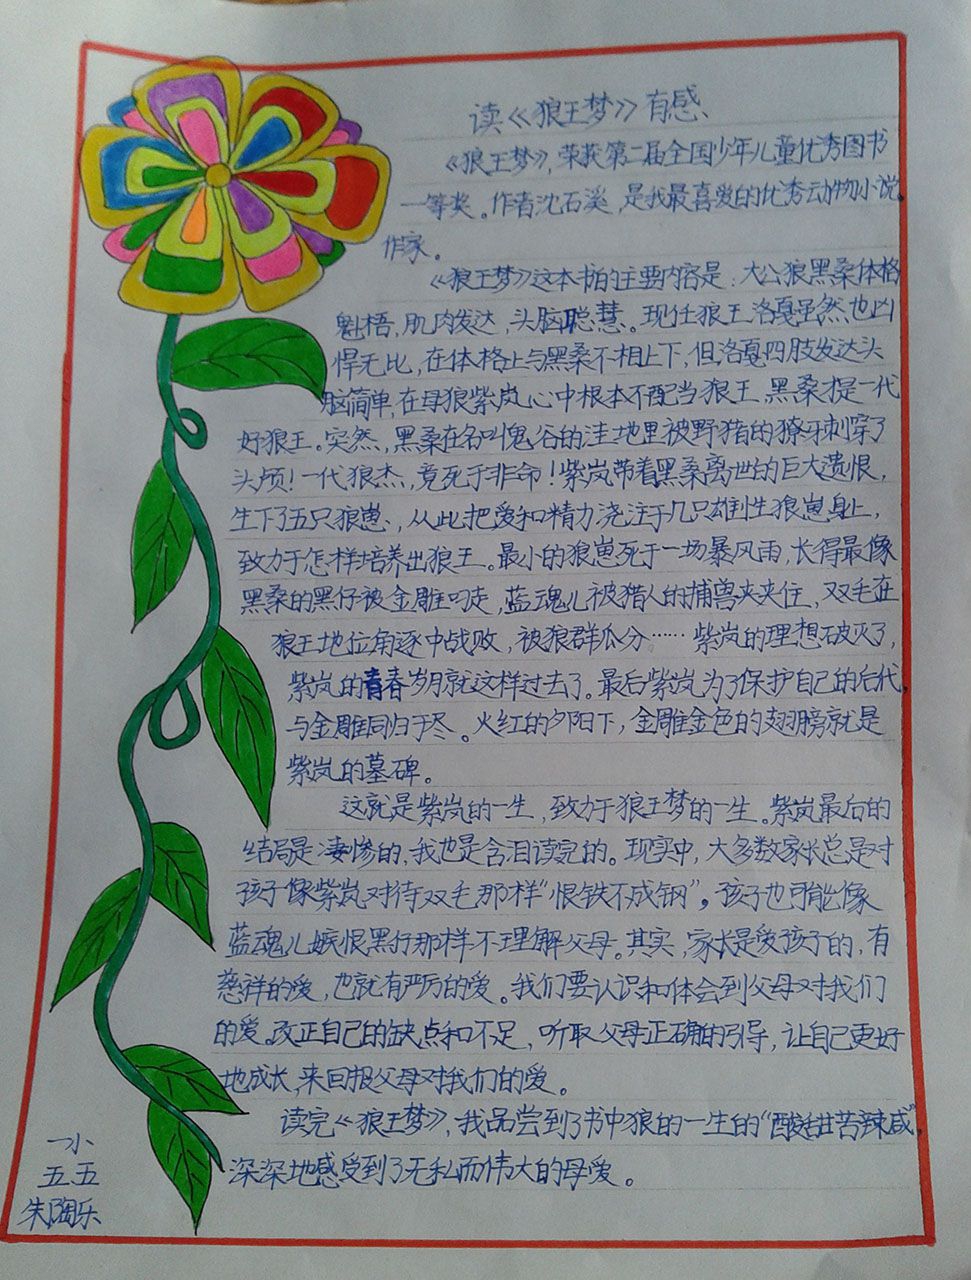 读《狼王梦》有感
《狼王梦》,荣获第二届全国少年儿童优秀图书
一等奖。作者沈石溪,是我最喜爱的优秀动物小说
作家。
《狼王梦》这本书的主要内容是:大公狼黑桑体格
魁梧,肌肉发达,头脑聪慧。现任狼王洛戛虽然也凶
悍无比,在体格上与黑桑不相上下,但洛戛四肢发达头
脑简单,在母狼紫岚心中根本不配当狼王,黑桑才是一代
好狼王。突然,黑桑在名叫鬼谷的洼地里被野猪的獠牙刺穿了
头颅!一代狼杰,竟死于非命!紫岚带着黑桑离世的巨大遗恨,
生下了五只狼崽,从此把爱和精力浇注于几只雄性狼崽身上,
致力于怎样培养出狼王。最小的狼崽死于一场暴风雨,长得最像
黑桑的黑仔被金雕叼走,蓝魂儿被猎人的捕兽夹夹住,双毛在
狼王地位角逐中战败,被狼群瓜分……紫岚的理想破灭了,
紫岚的青春岁月就这样过去了。最后紫岚为了保护自己的后代,
与金雕同归于尽。火红的夕阳下,金雕金色的翅膀就是
紫岚的墓碑。
这就是紫岚的一生,致力于狼王梦的一生。紫岚最后的
结局是凄惨的,我也是含泪读完的。现实中,大多数家长总是对
孩子像紫岚对待双毛那样“恨铁不成钢”。孩子也可能像
蓝魂儿嫉恨黑仔那样不理解父母。其实,家长是爱孩子的,有
慈祥的爱,也就有严厉的爱。我们要认识和体会到父母对我们
的爱。改正自己的缺点和不足,听取父母正确的引导,让自己更好
地成长,来回报父母对我们的爱。
读完《狼王梦》,我品尝到了书中狼的一生的“酸甜苦辣咸”
深深地感受到了无私而伟大的母爱。
一小
五.五
朱陶乐